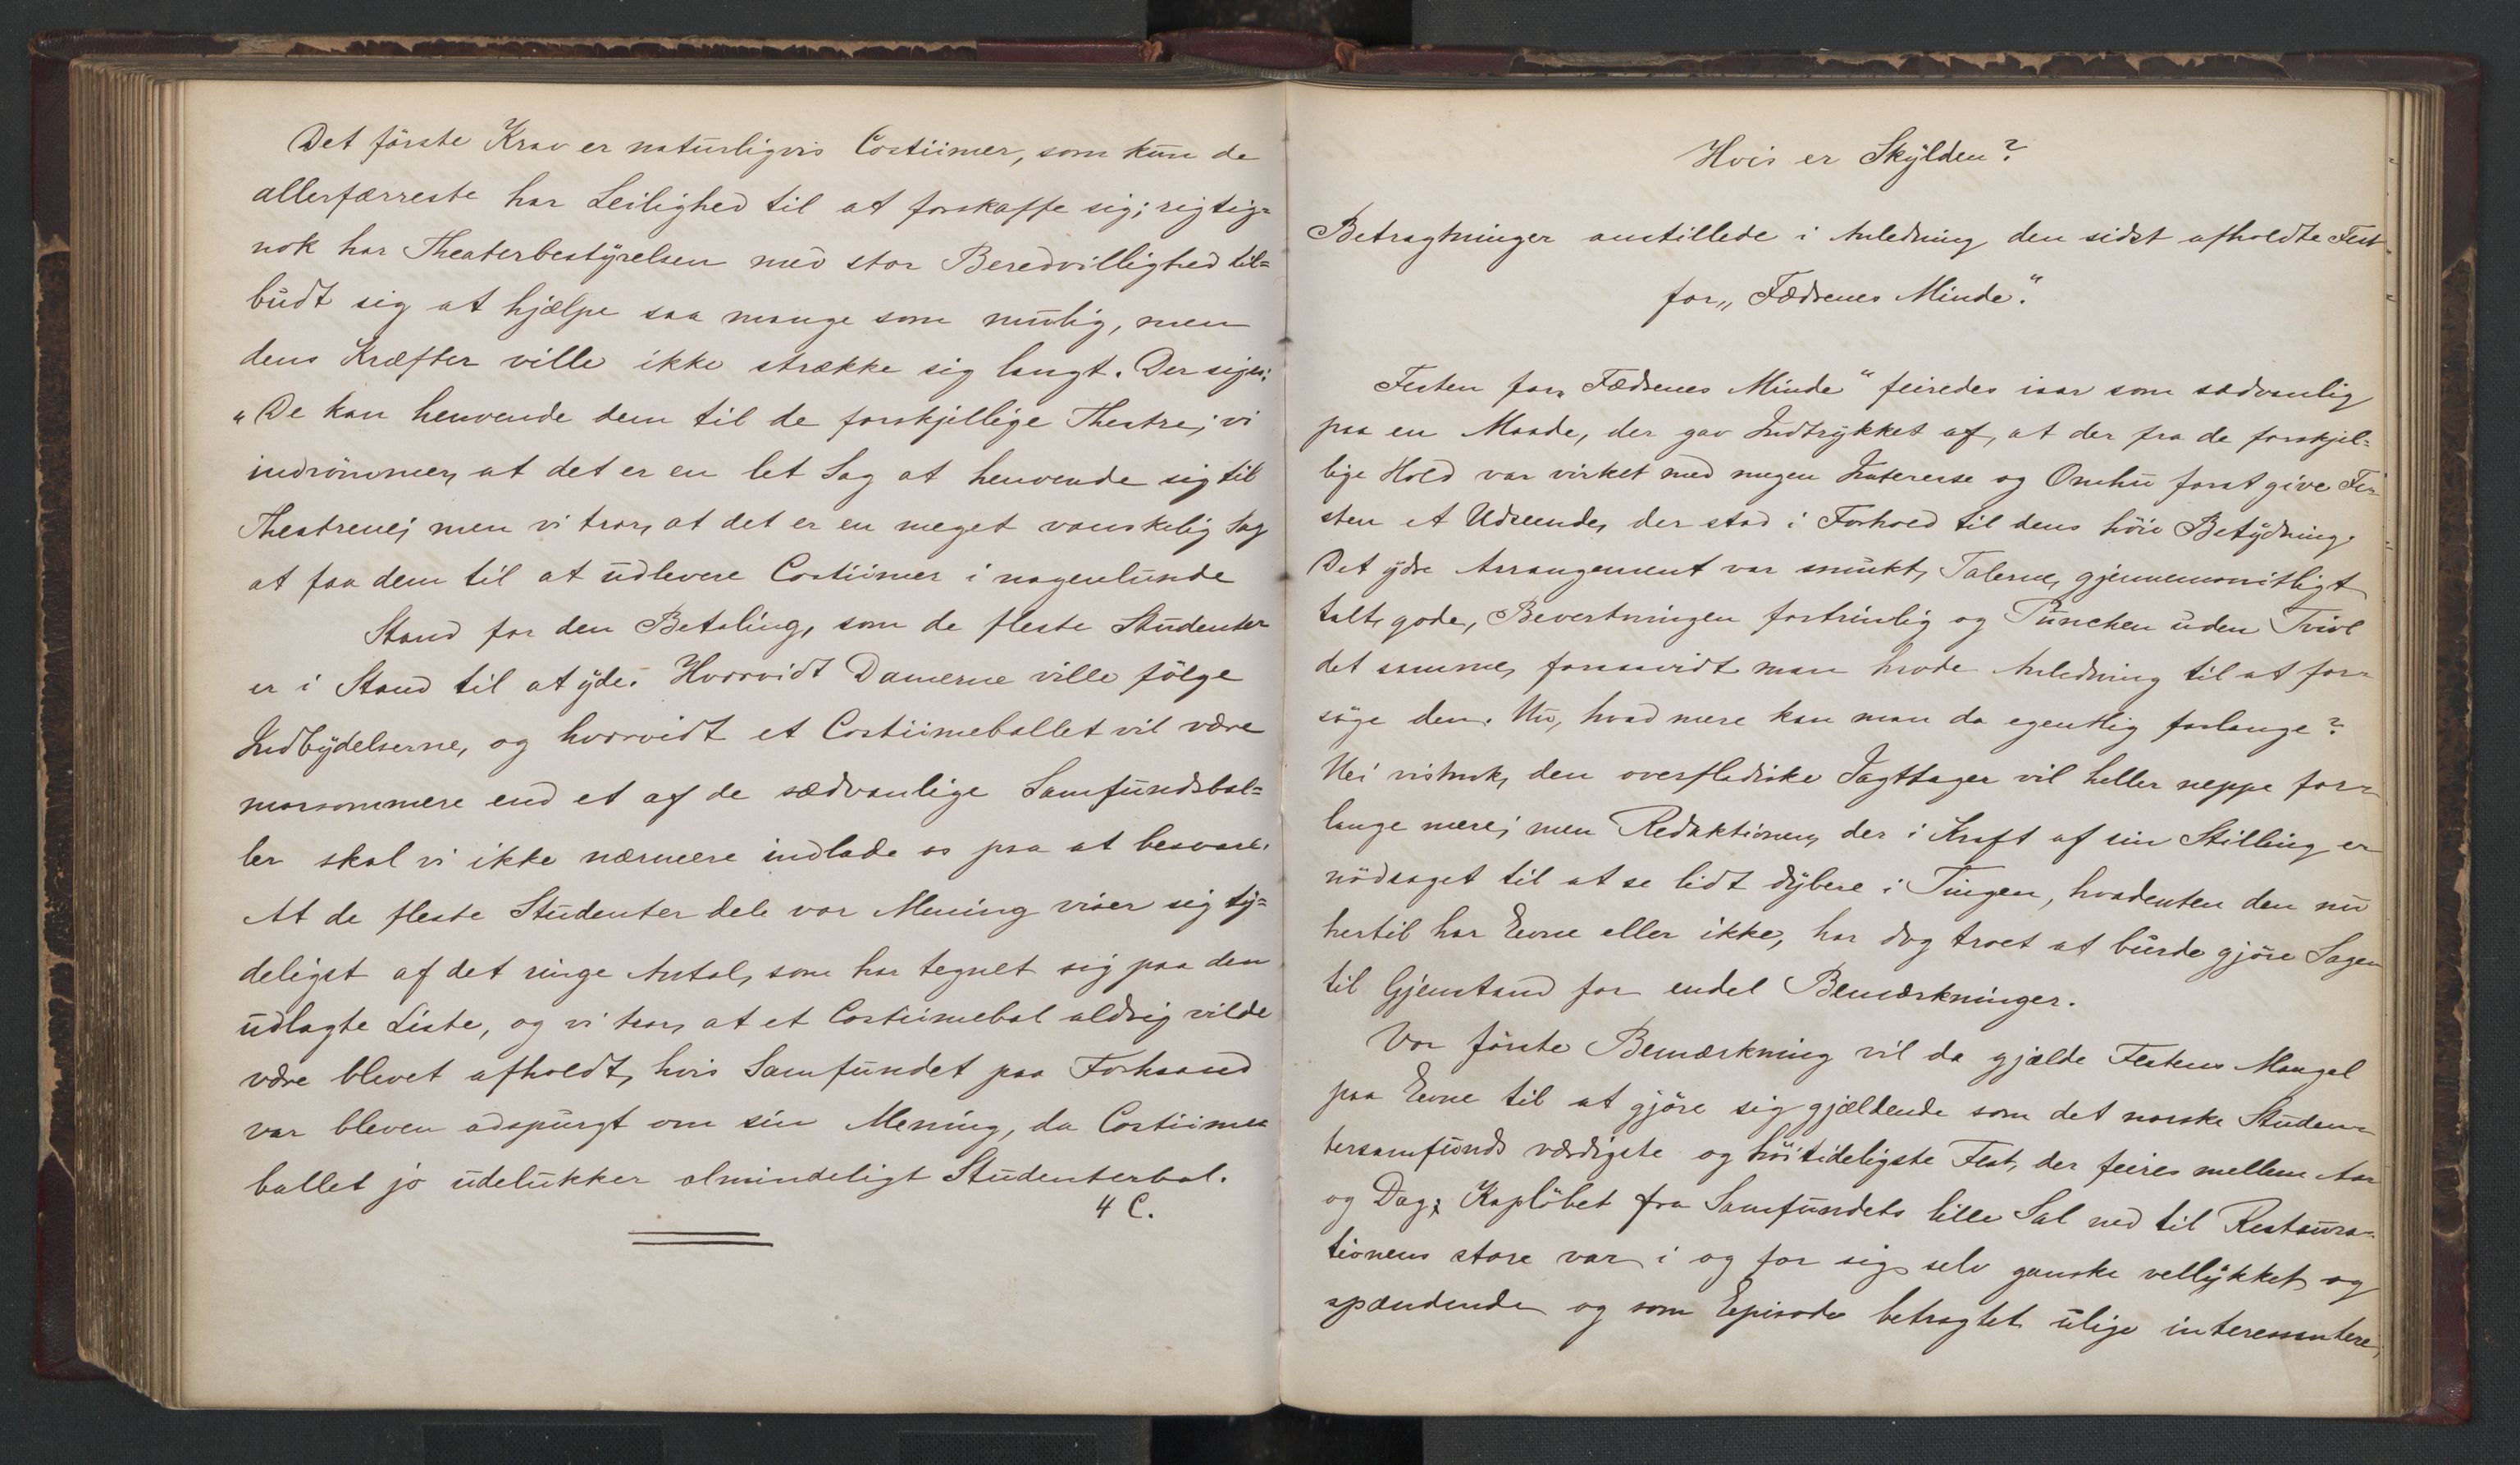 Det första Krav er naturligvis Costümer, som kun de
allerfærreste har Leilighed til at forskaffe sig; rigtig=
nok har Theaterbestyrelsen med stor Beredvillighed til=
budt sig at hjælpe saa mange som mulig, men
dens Kræfter ville ikke strække sig langt. Der siges:
"De kan henvende dem til de forskjellige Theatre; vi
indrömmer, at det er en let Sag at henvende sig til
Theatrene; men vi tror, at det er en meget vanskelig Sag
at faa dem til at udlevere Costümer i nogenlunde
Stand for den Betaling, som de fleste Studenter
er i Stand til at yde. Hvorvidt Damerne ville fölge
Indbydelserne, og hvorvidt et Costümeballet vil være
morsommere end et af de sædvanlige Samfundsbal=
ler skal vi ikke nærmere indlade os paa at besvare.
At de fleste Studenter dele vor Mening viser sig ty=
deligst af det ringe Antal, som har tegnet sig paa den
udlagte Liste, og vi tror, at et Costümebal aldrig vilde
være blevet afholdt, hvis Samfundet paa Forhaand
var bleven adspurgt om sin Mening, da Costüme
ballet jo udelukker almindeligt Studenterbal.
4 C.
Hvis er Skylden?
Betragtninger anstillede i Anledning den sidst afholdte Fest
for "Fædrenes Minde".
Festen for "Fædrenes Minde" feiredes iaar som sædvanlig
paa en Maade, der gav Indtrykket af, at der fra de forskjel=
lige Hold var virket med megen Interesse og Omhu for at give Fe=
sten et Udseende, der stod i Forhold til dens höie Betydning.
Det ydre Arrangement var smukt, Talerne, gjennemsnitligt
talt, gode, Bevertningen fortrinlig og Punchen uden Tvivl
det samme, forsaavidt man havde Anledning til at for=
söge den. Nu, hvad mere kan man da egentlig forlange?
Nei vistnok, den overfladiske Iagttager vil heller neppe for=
lange mere; men Redaktionen, der i Kraft af sin Stilling er
nödsaget til at se lidt dybere i Tingen, hvadenten den nu
hertil har Evne eller ikke, har dog troet at burde gjöre Sagen
til Gjenstand for endel Bemærkninger.
Vor förste Bemærkning vil da gjælde Festens Mangel
paa Evne til at gjöre sig gjældende som det norske Studen=
tersamfunds værdigste og höitideligste Fest, der feires mellem Aar
og Dag; Kaplöbet fra Samfundets lille Sal ned til Restaura=
tionens store var i og for sig selv ganske vellykket og
spændende og som Episode betragtet ulige interessantere,